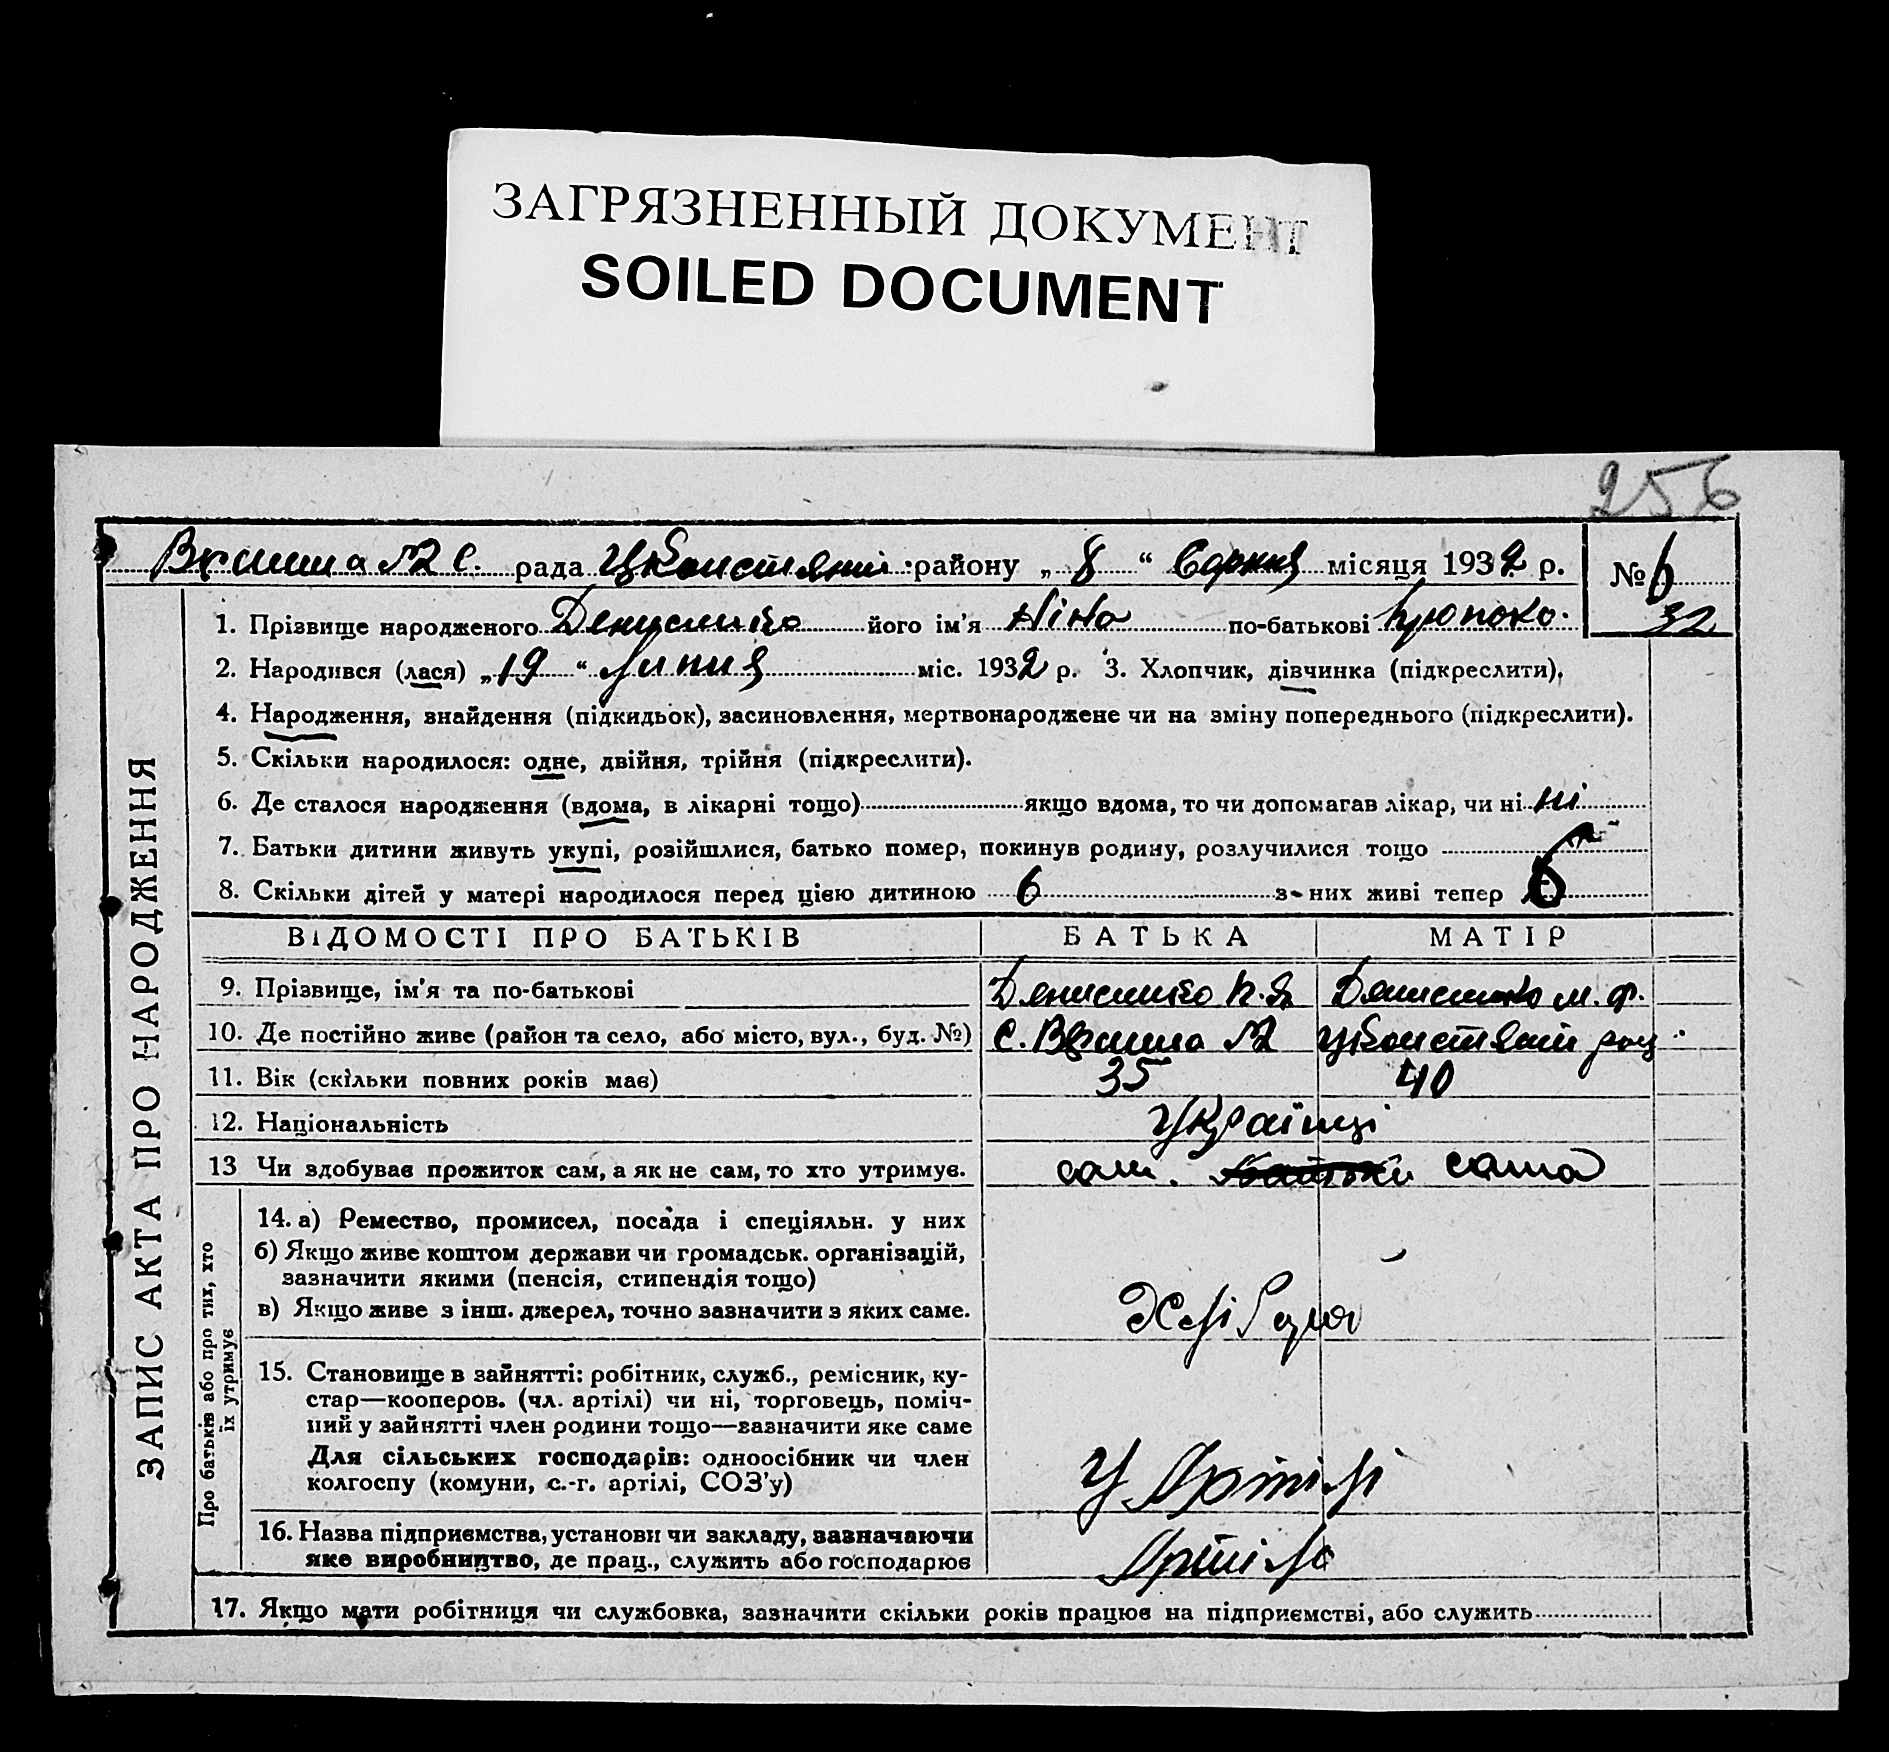 ЗАГРЯЗНЕННЫЙ ДОКУМЕНТ
SOILED DOCUMENT
256
с. рада району „ 8 “ Серпня місяця 1932 р. № 6
32
1. Прізвище народженого його ім'я Ніна по-батькові
2. Народився (лася) „ 19 “ Липня міс. 1932 р. 3. Хлопчик, дівчинка (підкреслити).
4. Народження, знайдення (підкидьок), засиновлення, мертвонароджене чи на зміну попереднього (підкреслити).
5. Скільки народилося: одне, двійня, трійня (підкреслити).
6. Де сталося народження (вдома, в лікарні тощо) якщо вдома, то чи допомагав лікар, чи ні ні
7. Батьки дитини живуть укупі, розійшлися, батько помер, покинув родину, розлучилися тощо
8. Скільки дітей у матері народилося перед цією дитиною 6 з них живі тепер 6
ЗАПИС АКТА ПРО НАРОДЖЕННЯ
ВІДОМОСТІ ПРО БАТЬКІВ БАТЬКА МАТІР
9. Прізвище, ім'я та по-батькові
10. Де постійно живе (район та село, або місто, вул., буд. №) с.
11. Вік (скільки повних років має) 35 40
12. Національність Українці
13 Чи здобуває прожиток сам, а як не сам, то хто утримує. сам. сама
Про батьків або про тих, хто
їх утримує
14. а) Ремество, промисел, посада і спеціяльн. у них
б) Якщо живе коштом держави чи громадськ. організацій,
зазначити якими (пенсія, стипендія тощо)
в) Якщо живе з інш. джерел, точно зазначити з яких саме.
Хлібороб
15. Становище в зайнятті: робітник, служб., ремісник, ку-
стар—кооперов. (чл. артілі) чи ні, торговець, поміч-
ний у зайнятті член родини тощо—зазначити яке саме
Для сільських господарів: одноосібник чи член
колгоспу (комуни, с.-г. артілі, СОЗ'у)
У Артілі
16. Назва підприємства, установи чи закладу, зазначаючи
яке виробництво, де прац., служить або господарює
Артіль
17. Якщо мати робітниця чи службовка, зазначити скільки років працює на підприємстві, або служить